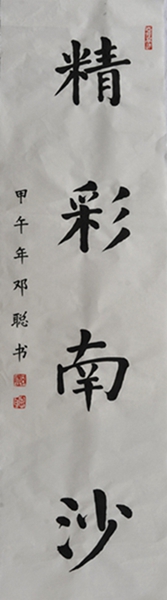 精彩南沙
甲午年邓聪书